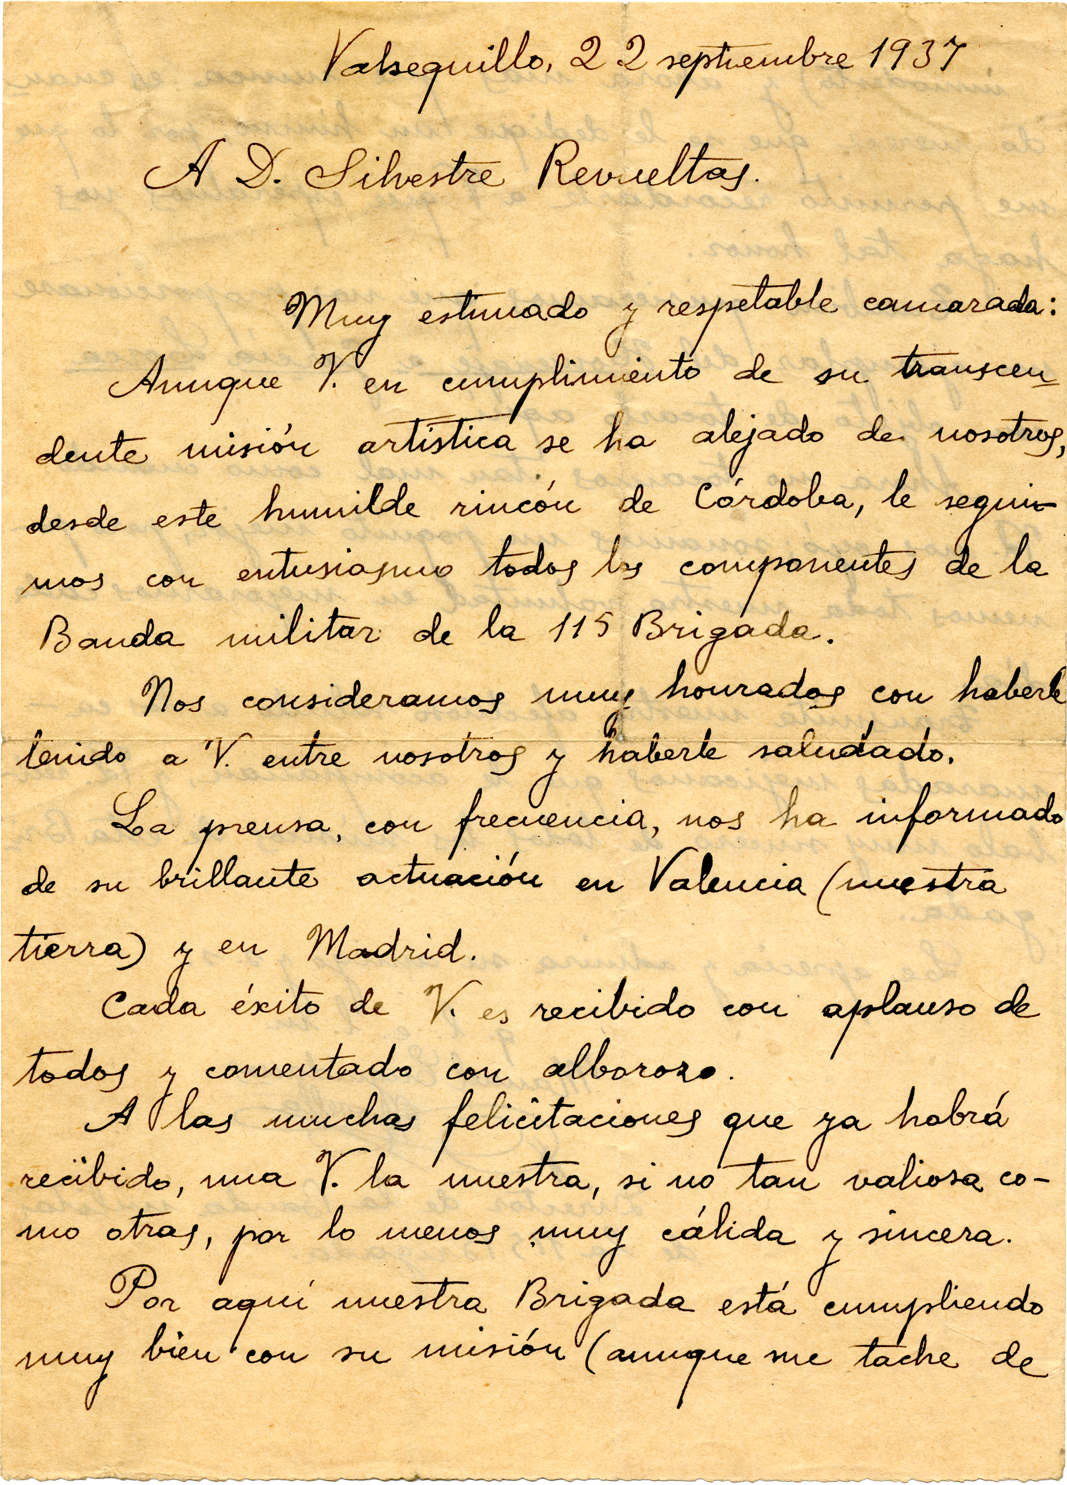 Valsequillo, 22 septiembre 1937
A D. Silvestre Revueltas.
Muy estimado y respetable camarada:
Aunque V. en cumplimiento de su transcen-
dente misión artística se ha alejado de nosotros,
desde este humilde rincón de Córdoba, le segui-
mos con entusiasmo todos los componentes de la
Banda militar de la 115 Brigada.
Nos consideramos muy honrados con haberle
tenido a V. entre nosotros y haberle saludado.
La prensa, con frecuencia, nos ha informado
de su brillante actuación en Valencia (nuestra
tierra) y en Madrid.
Cada éxito de V. es recibido con aplauso de
todos y comentado con alborozo.
A las muchas felicitaciones que ya habrá
recibido, una V. la nuestra, si no tan valiosa co-
mo otras, por lo menos muy cálida y sincera.
Por aquí nuestra Brigada está cumpliendo
muy bien con su misión (aunque me tache de